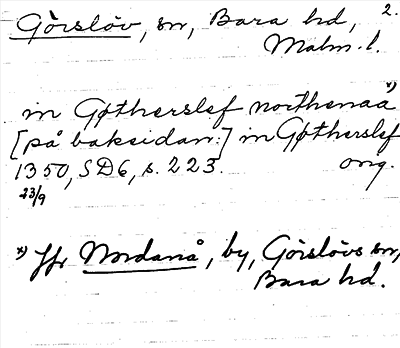 Görslöv, sn, Bara hd, 2.
Malm. l.
in Gøtherslef northenaa x)
[på baksidan:] in Gøtherslef
1350, SD6, s. 223. orig.
23/9
x) Jfr Nordanå, by, Görslövs sn,
Bara hd.